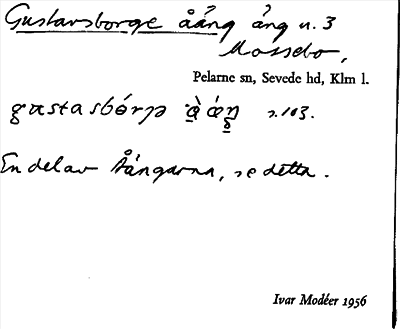 Gustavsborge åäng äng n. 3
Mossebo,
Pelarne sn, Sevede hd, Klm l.
s. 103.
En del av Åängarna, se detta.
Ivar Modéer 1956